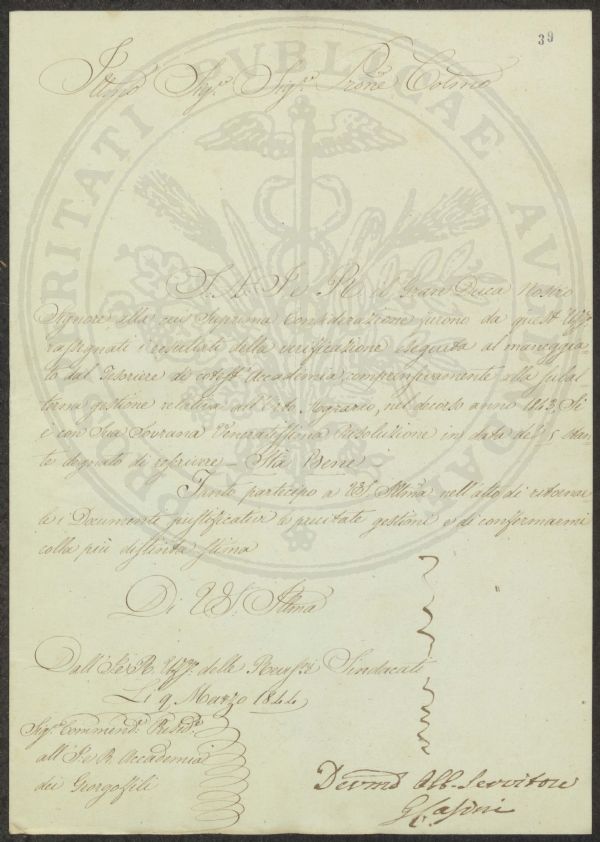 39
Illmo Sig.r Sig.r Prōne Colmo
S. A. I. e R. il Gran Duca Nostro
Signore alla cui Suprema Considerazione furono da quest' Uffº
rassegnati i resultati della verificazione eseguita al maneggia
to dal Tesoriere di cotest' Accademia comprensivamente alla subal
terna gestione relativa all' Orto Agrario, nel decorso anno 1843, Si
è con Sua Sovrana Veneratissima Risoluzione in data de' 5 stan
te degnato di rescrivere – Sta Bene
Tanto partecipo a VS. Illma nell' atto di ritornar
le i Documenti giustificativi le precitate gestioni e di confermarmi
colla più distinta stima
Di VS. Illma
Dall' I. e R. Uffº. delle Revisi Sindacati
Li 9 Marzo 1844
Sigr. Commend.e Presid.e
all' I. e R. Accademia
dei Georgofili
Devmo Obb. Servitore
G Casini
PROSPERITATI PUBLICAE AUGENDAE